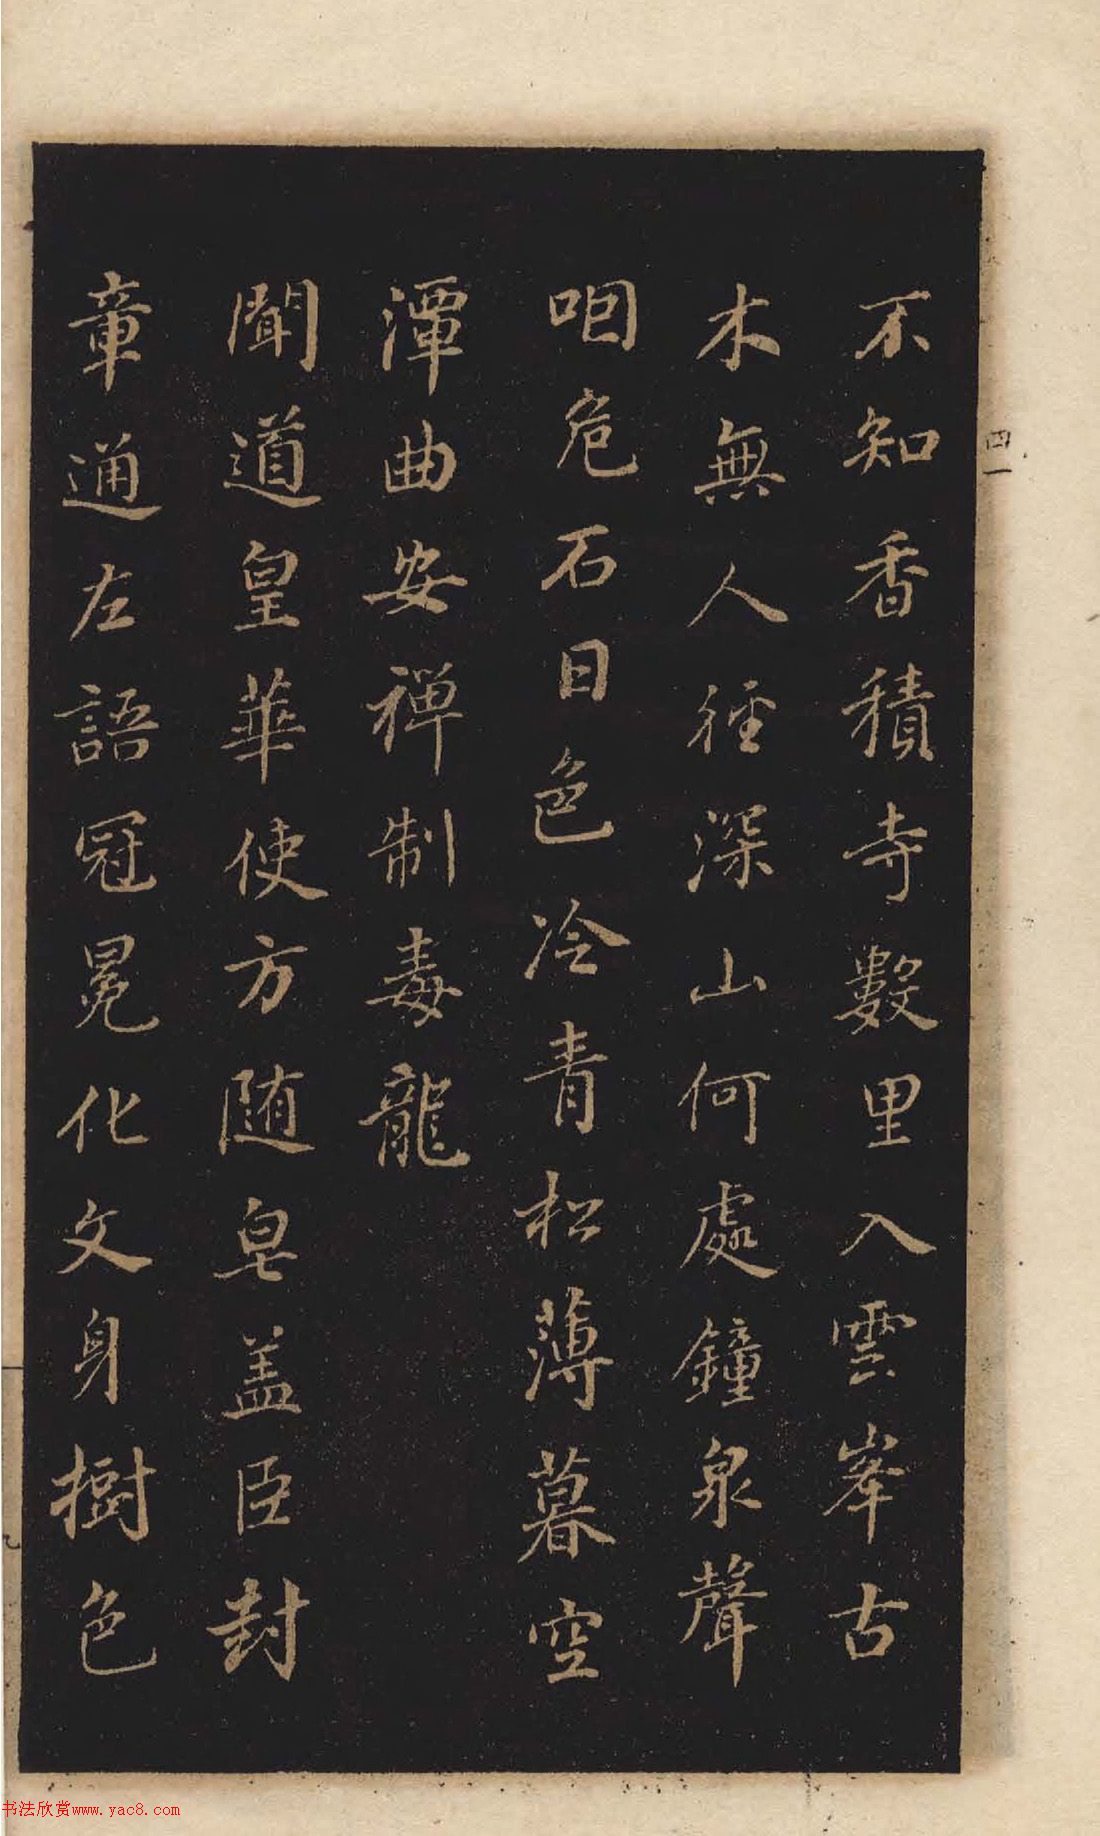 不知香積寺數里入雲峯古
木無人徑深山何處鐘泉聲
咽危石日色冷青松薄暮空
潭曲安禪制毒龍
聞道皇華使方随皂盖臣封
章通左語冠冕化文身樹色
四一
九
书法欣赏www.yac8.com